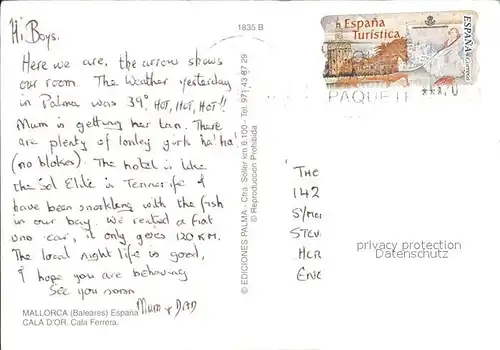 Hi Boys.
Here we are, the arrow shows
our room. The Weather yesterday
in Palma was 39° HOT, HOT, HOT!!
Mum is getting her tan. There
are plenty of lonley girls ha' ha'
(no blokes). The hotel is like
the Sol Elite in Tennerife I
have been snorkling with the fish
in our bay We rented a fiat
uno car, it only goes 120 KM.
The local night life is good,
I hope you are behaving
See you soon
Mum + DAD
MALLORCA (Baleares) España
CALA D'OR. Cala Ferrera.
1835 B
© EDICIONES PALMA - Ctra. Sóller km 6,100 - Tel. 971 43 87 29
© Reproduccion Prohibida
España
Turística
ESPAÑA
Correos
PAQUET
THE
142
STEV
HER
ENG
privacy protection
Datenschutz